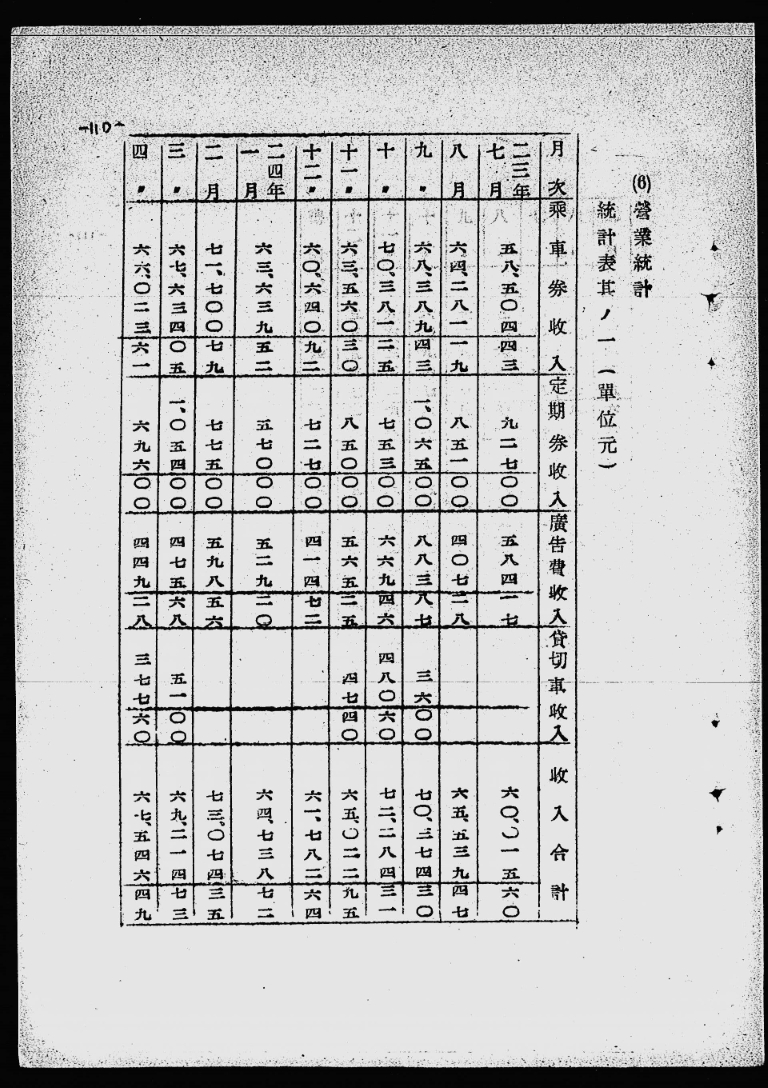 (6)營業統計
統計表其ノ一(單位元)
月次 乘車券收入 定期券收入 廣告費收入 貸切車收入 收入合計
二三年七月 五八、五〇四四三 九二七〇〇 五八四一七 六〇、〇一五六〇
八月 六四、二八一一九 八五一〇〇 四〇七二八 六五、五三九四七
九〃 六八、三八九四三 一、〇六五〇〇 八八三八七 三六〇〇 七〇、三七四三〇
十〃 七〇、三八一二五 七五三〇〇 六六九四六 四八〇六〇 七二、二八四三一
十一〃 六三、五六〇三〇 八五〇〇〇 五六五二五 四七四〇 六五、〇二二九五
十二〃 六〇、六四〇九二 七二七〇〇 四一四七二 六一、七八二六四
二四年一月 六三、六三九五二 五七〇〇〇 五二九二〇 六四、七三八七二
二月 七一、七〇〇七九 七七五〇〇 五九八五六 七三、〇七四三五
三〃 六七、六三四〇五 一、〇五四〇〇 四七五六八 五一〇〇 六九、二一四七三
四〃 六六、〇二三六一 六九六〇〇 四四九二八 三七七六〇 六七、五四六四九
-110-